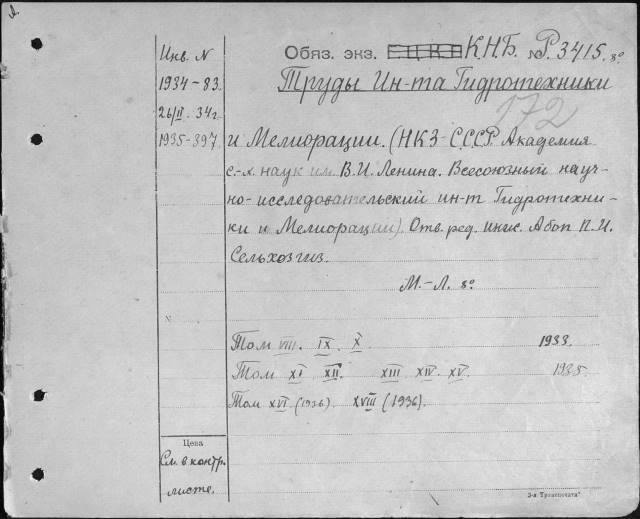 Инв. N
1934-83.
26/II 34г
1935-397
Обяз. экз. ЕЦКБ К.Н.Б. № Р3415. 8°
Труды Ин-та Гидротехники
172
и Мелиорации. (НКЗ-С.С.С.Р. Академия
с.-х. наук им. В.И. Ленина. Всесоюзный науч-
но-исследовательский ин-т Гидротехни-
ки и Мелиорации). Отв. ред. инж. П.И.
Сельхозгиз.
М.-Л. 8°
Том VIII. IX. X. 1933.
Том XI XII. XIII XIV. XV. 1935.
Том XVI (1936). XVIII (1936).
Цена
См. в контр.
листе.
3-я "Транспечати"